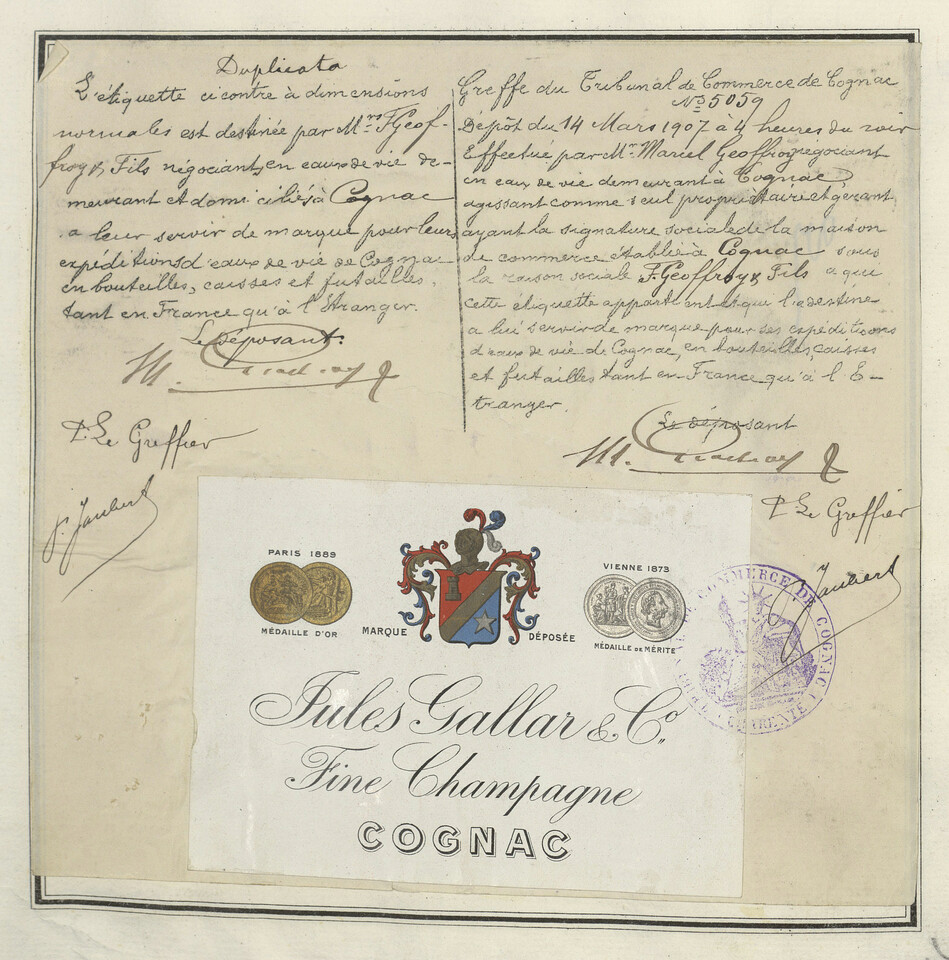 Duplicata
L'étiquette ci contre à dimensions
normales est destinée par Mrs F Geof-
froy & Fils négociants en eaux de vie de-
meurant et domiciliés à Cognac
a leur servir de marque pour leurs
expéditions d'eaux de vie de Cognac
en bouteilles, caisses et futailles,
tant en France qu'à l'Etranger.
Le Déposant.
P. Le Greffier
Jaubert
Greffe du Tribunal de Commerce de Cognac
No 5059
Dépôt du 14 Mars 1907 à 4 heures du soir
Effectué par Mr Marcel Geoffroy négociant
en eaux de vie demeurant à Cognac
agissant comme seul propriétaire et gérant
ayant la signature sociale de la maison
de commerce établie à Cognac sous
la raison sociale F Geoffroy & Fils a qui
cette étiquette appartient et qui l'a destine
a lui servir de marque pour ses expéditions
d'eaux de vie de Cognac, en bouteilles, caisses
et futailles tant en France qu'à l'E-
tranger.
Le déposant
P. Le Greffier
Jaubert
PARIS 1889
MÉDAILLE D'OR
MARQUE DÉPOSÉE
VIENNE 1873
MÉDAILLE DE MÉRITE
Jules Gallar & Co.
Fine Champagne
COGNAC
COMMERCE DE COGNAC
CHARENTE